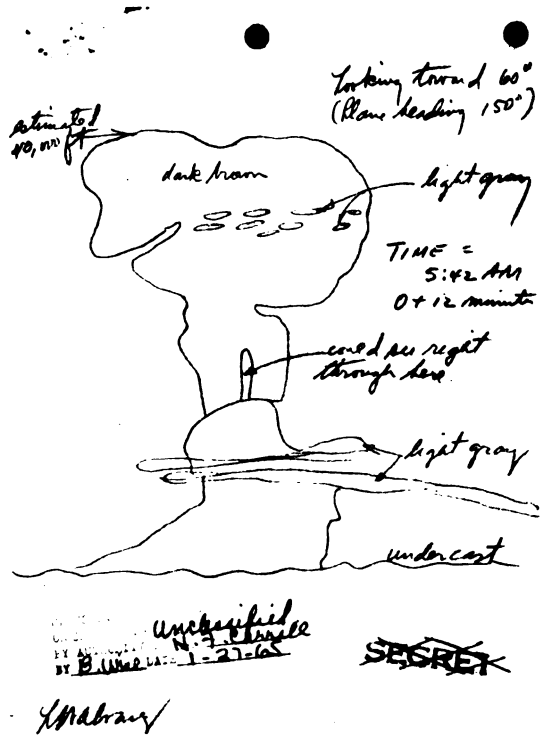 Looking toward 60°
(Plane heading 150°)
estimated
40,000 ft
dark brown
light gray
TIME =
5:42 AM
0 + 12 minutes
could see right
through here
light gray
undercast
Unclassified
BY DATE 1-27-65
SECRET